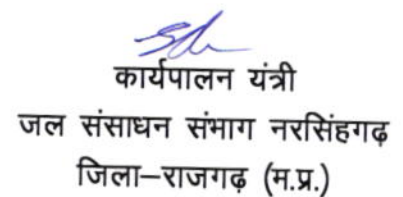 कार्यपालन यंत्री
जल संसाधन संभाग नरसिंहगढ़
जिला–राजगढ़ (म.प्र.)